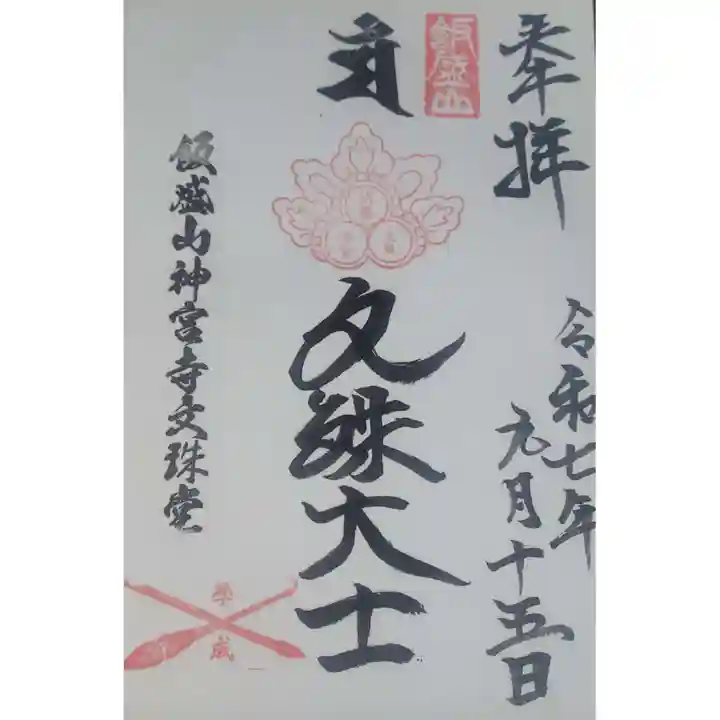 奉拝
令和七年
元月十五日
飯盛山
文殊大士
飯盛山神宮寺文珠堂
学
成